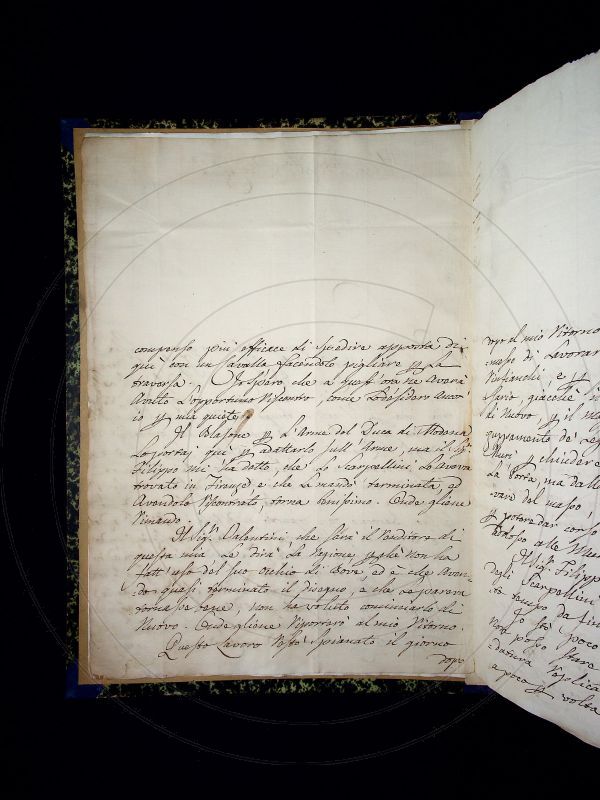 compenso piú efficace di spedire apposta di
quì con un Cavallo facendolo pigliare p. La
traversa. Io spero, che a quest'ora ne Averà
Avuto L'opportuno Riscontro, come Desidero Ancor
io p. mia quiete.
Il Blasone p. L'Arme del Duca di Modena
Lo portai quì p. adattarlo sull'Arme, ma il Sig.
Filippo mi ha detto, che Lo Scarpellini Lo Aveva
trovato in Firenze e che Lo mandò terminato, e
Avendolo Riscontrato, torna Benissimo. Onde gliene
Rimando.
Il Sig. Valentini, che sarà il Venditore di
questa mia Le dirà La Ragione, p. che non ha
fatt'uso del suo occhio di Bove, ed è che Aven-
do quasi terminato il Disegno, e che Le pareva
tornasse bene, non ha voluto cominciarlo di
Nuovo. Onde gliene Riporterò al mio Ritorno.
Questo Lavoro Restò Spianato il giorno
dopo
dopo il mio Ritorno
mase di Lavorar
e p.
giacchè
di Nuovo, p. il
Muri p. chiudere
La Porta, ma dalla
cave del masso
p. poter dar corso
Il Sig. Filippo
degli Scarpellini
to tempo da
Io sto poco
Replica
a poco p. volta